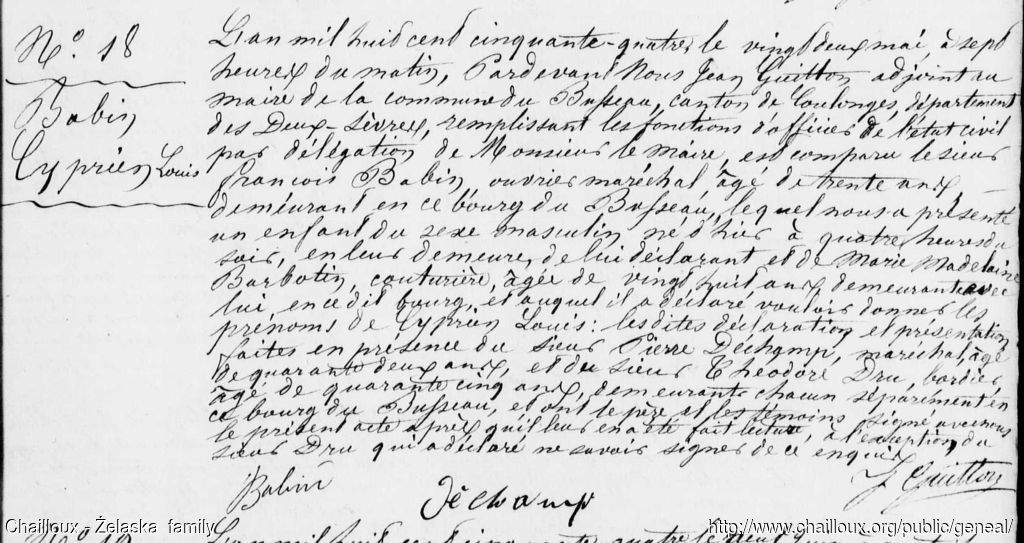 N.° 18
Babin
Cyprien Louis
L'an mil huit cent cinquante-quatre, le vingt deux mai, à sept
heures du matin, Pardevant Nous Jean Guitton adjoint au
maire de la commune du Busseau, canton de Coulonges, département
des Deux-Sèvres, remplissant les fonctions d'officier de l'état civil
par délégation de Monsieur le Maire, est comparu le sieur
François Babin, ouvrier maréchal, âgé de trente ans,
demeurant en ce bourg du Busseau, lequel nous a présenté
un enfant du sexe masculin, né d'hier à quatre heures du
soir, en leur demeure, de lui déclarant et de Marie Madelaine
Barbotin, couturière, âgée de vingt huit ans demeurant avec
lui en ce dit bourg, et auquel il a déclaré vouloir donner les
prénoms de Cyprien Louis : les dites déclaration et présentation
faites en présence du sieur Pierre Déchamp, maréchal, âgé
de quarante deux ans, et du sieur Théodore Dru, bordier
âgé de quarante cinq ans, demeurants chacun séparément en
ce bourg du Busseau, et ont le père et les témoins signé avec nous
le présent acte après qu'il leur en a été fait lecture, à l'exception du
sieur Dru qui a déclaré ne savoir signer de ce enquis.
Babin Déchamp J Guitton
N.° 19 L'an mil huit cent cinquante quatre le
Chailloux - Żelaska family http://www.chailloux.org/public/geneal/